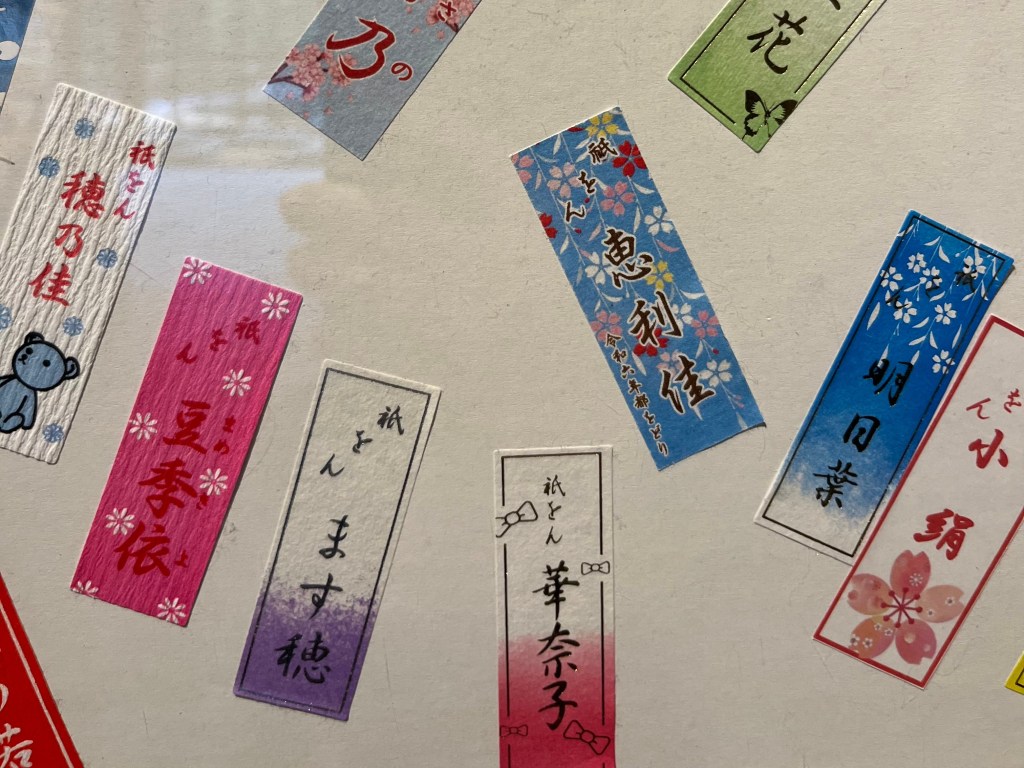 乃の
花
祇をん
穂乃佳
祇をん
豆季依
まめ
よ
祇をん
ます穂
祇をん
華奈子
祇をん
恵利佳
令和六年都をどり
祇をん
明日葉
をん
小絹
若